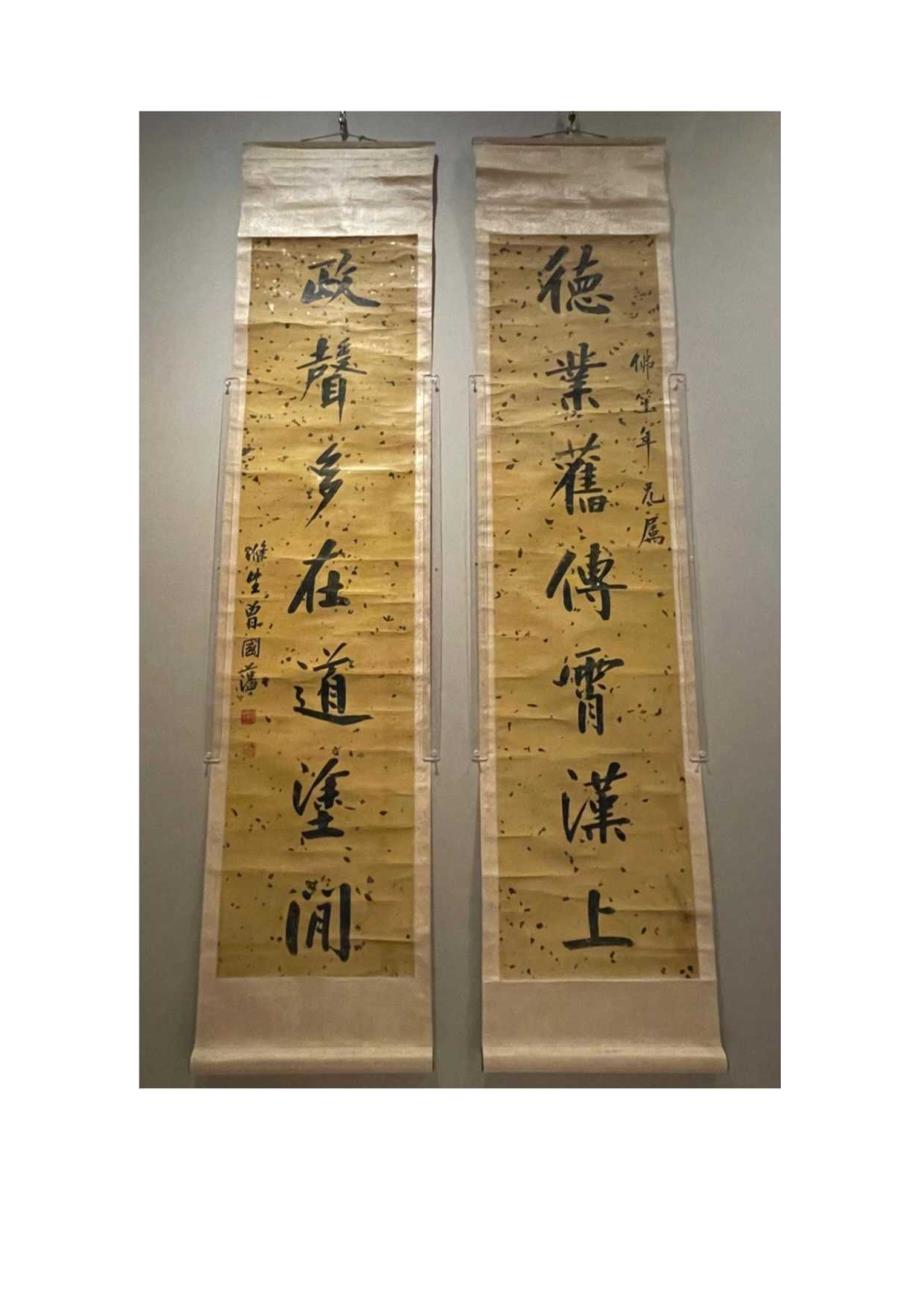 佛笙年兄屬
德業舊傳霄漢上
政聲多在道塗間
滌生曾國藩